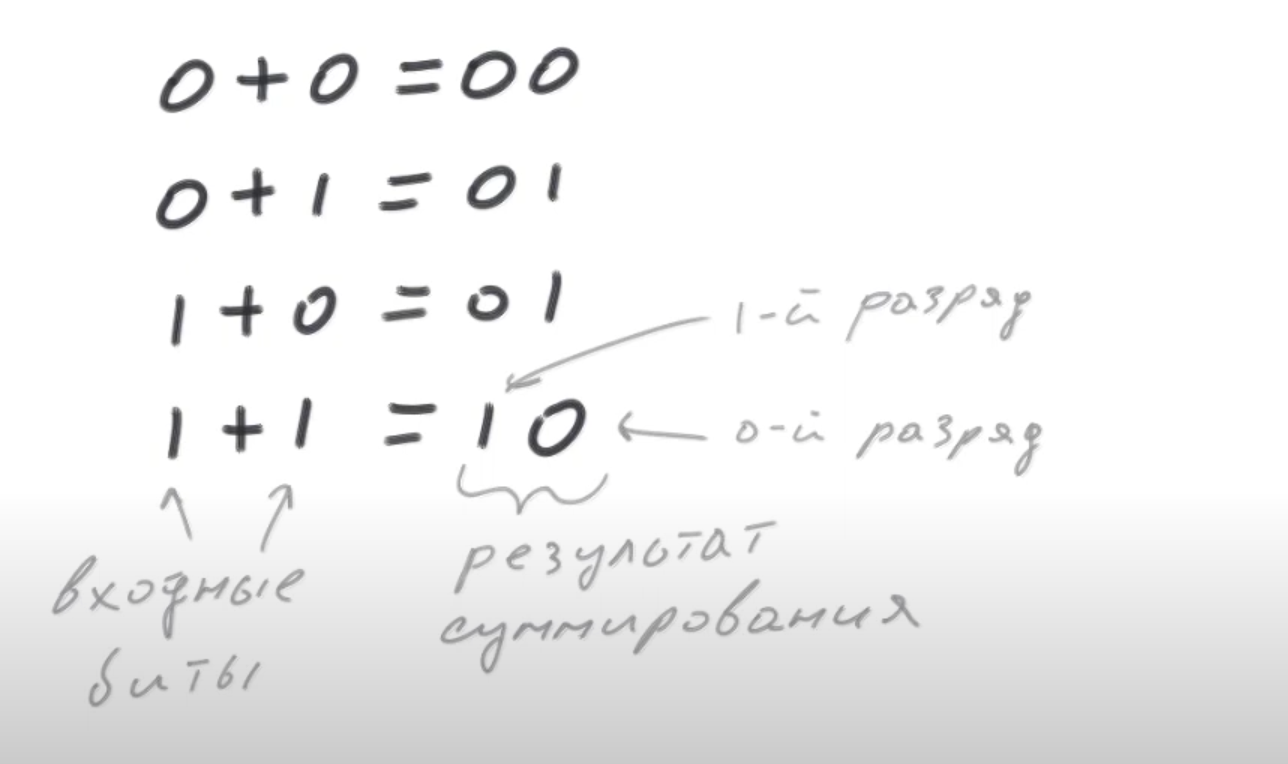 0+0=00
0+1=01
1+0=01
1-й разряд
1+1=10
0-й разряд
входные
биты
результат
суммирования